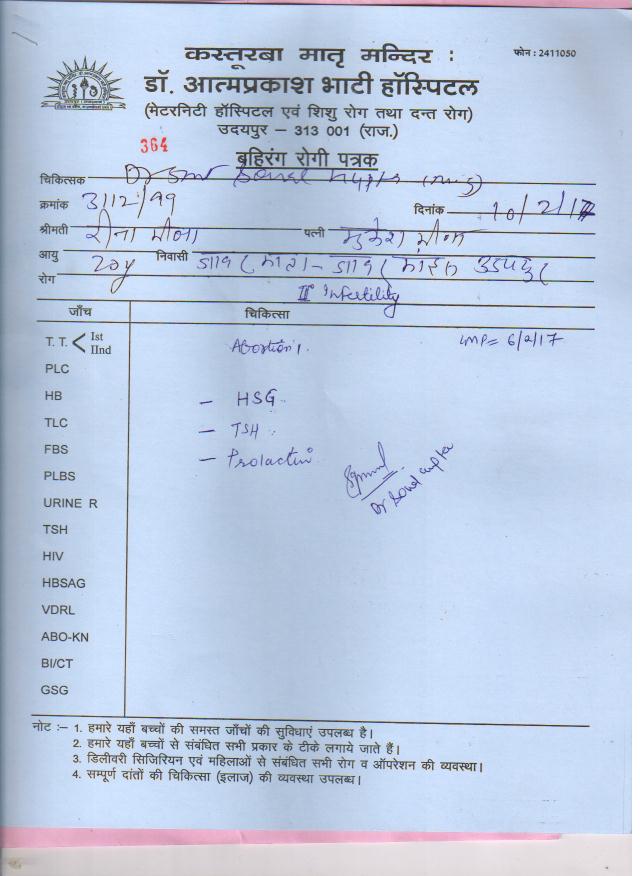 कस्तूरबा मातृ मन्दिर :
फोन : 2411050
डॉ. आत्मप्रकाश भाटी हॉस्पिटल
(मेटरनिटी हॉस्पिटल एवं शिशु रोग तथा दन्त रोग)
उदयपुर – 313 001 (राज.)
364
बहिरंग रोगी पत्रक
चिकित्सक Dr Smt Sonal Gupta
क्रमांक 3112/99 दिनांक 10/2/17
श्रीमती रीना मीणा पत्नी मुकेश मीणा
आयु 20y निवासी
रोग II° Infertility
जाँच चिकित्सा
T. T. < Ist
IInd
Abortion 1. LMP= 6/2/17
PLC
HB – HSG
TLC – TSH
FBS – Prolactin
PLBS
Dr Sonal Gupta
URINE R
TSH
HIV
HBSAG
VDRL
ABO-KN
BI/CT
GSG
नोट :– 1. हमारे यहाँ बच्चों की समस्त जाँचों की सुविधाएं उपलब्ध है।
2. हमारे यहाँ बच्चों से संबंधित सभी प्रकार के टीके लगाये जाते हैं।
3. डिलीवरी सिजिरियन एवं महिलाओं से संबंधित सभी रोग व ऑपरेशन की व्यवस्था।
4. सम्पूर्ण दांतों की चिकित्सा (इलाज) की व्यवस्था उपलब्ध।